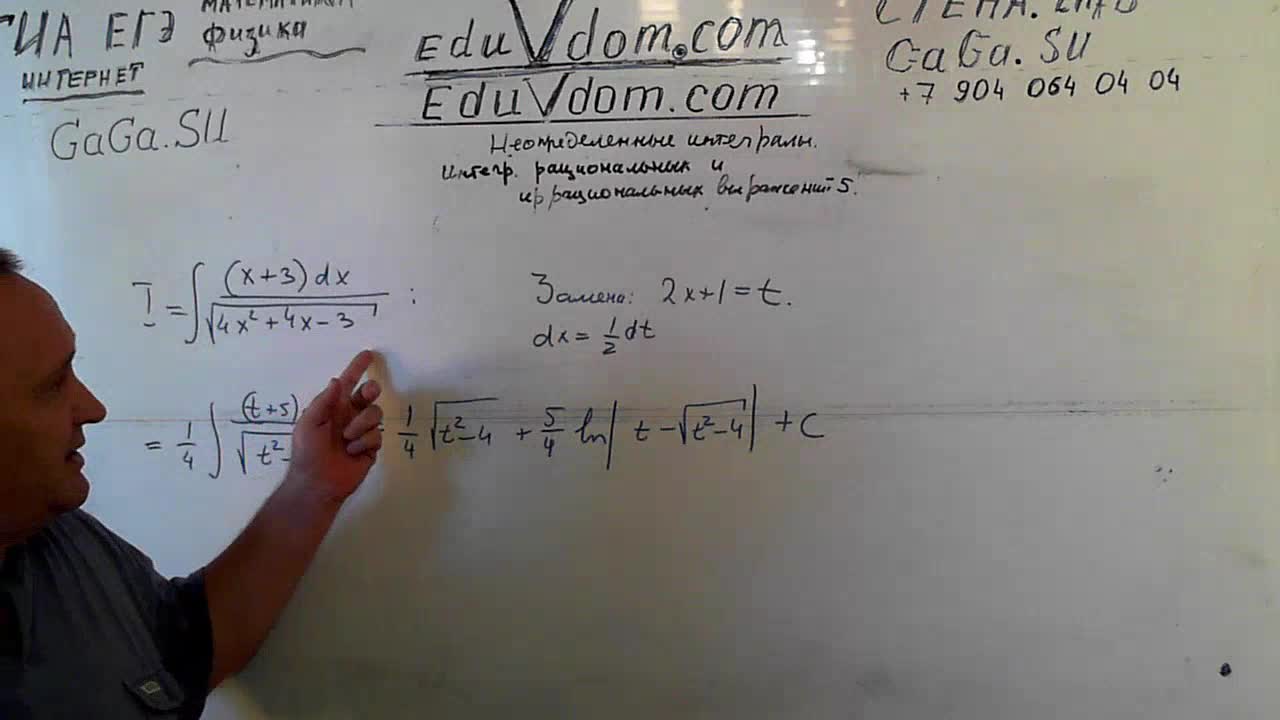 ГИА ЕГЭ
МАТЕМАТИКА
физика
ИНТЕРНЕТ
GaGa.SU
EduVdom.com
EduVdom.com
СТЕНА. INFO
GaGa. SU
+7 904 064 04 04
Неопределенные интегралы.
Интегр. рациональных и
иррациональных выражений 5.
I = ∫ (x+3) dx / √(4x² + 4x - 3) :
Замена: 2x+1 = t.
dx = 1/2 dt
= 1/4 ∫ (t+5) / √(t²-
1/4 √(t²-4) + 5/4 ln| t - √(t²-4) | + C